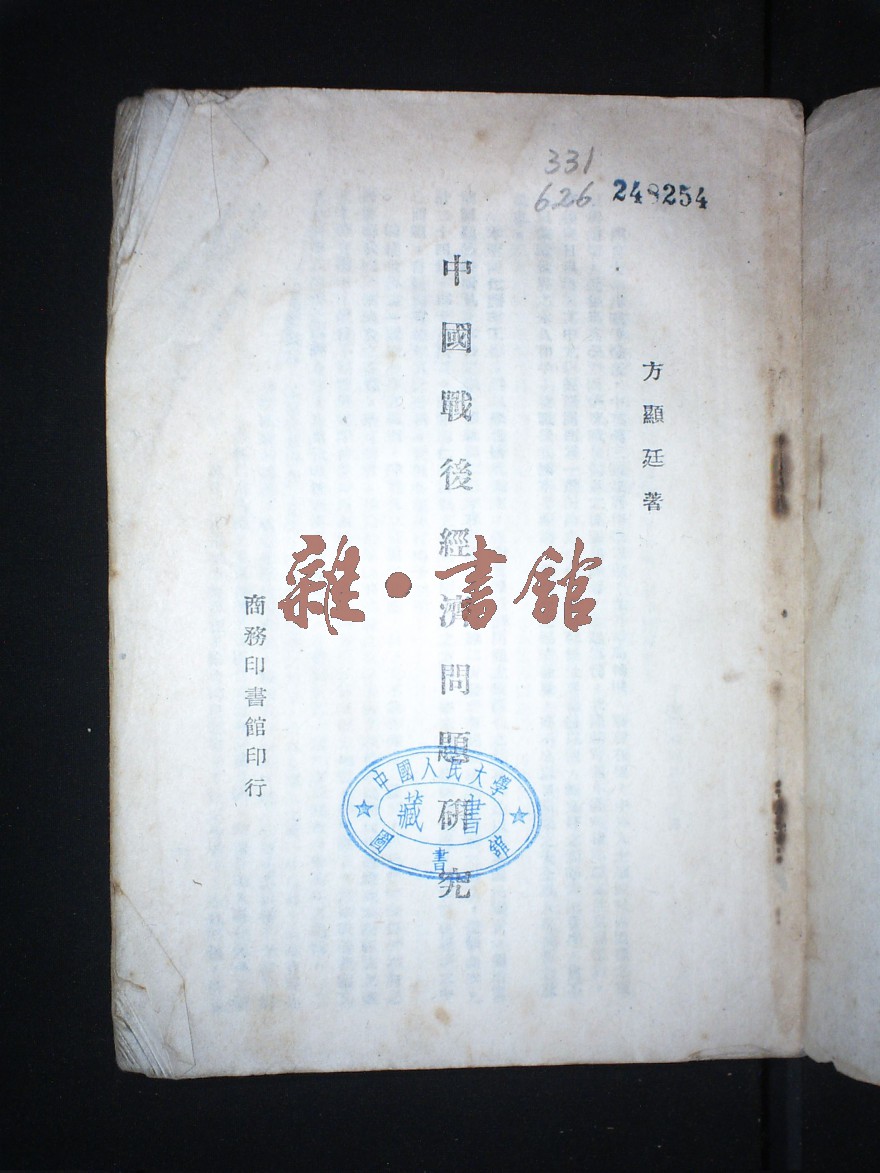 331
626 248254
方顯廷著
中國戰後經濟問題研究
商務印書館印行
雜·書館
中國人民大學
圖書館
藏書